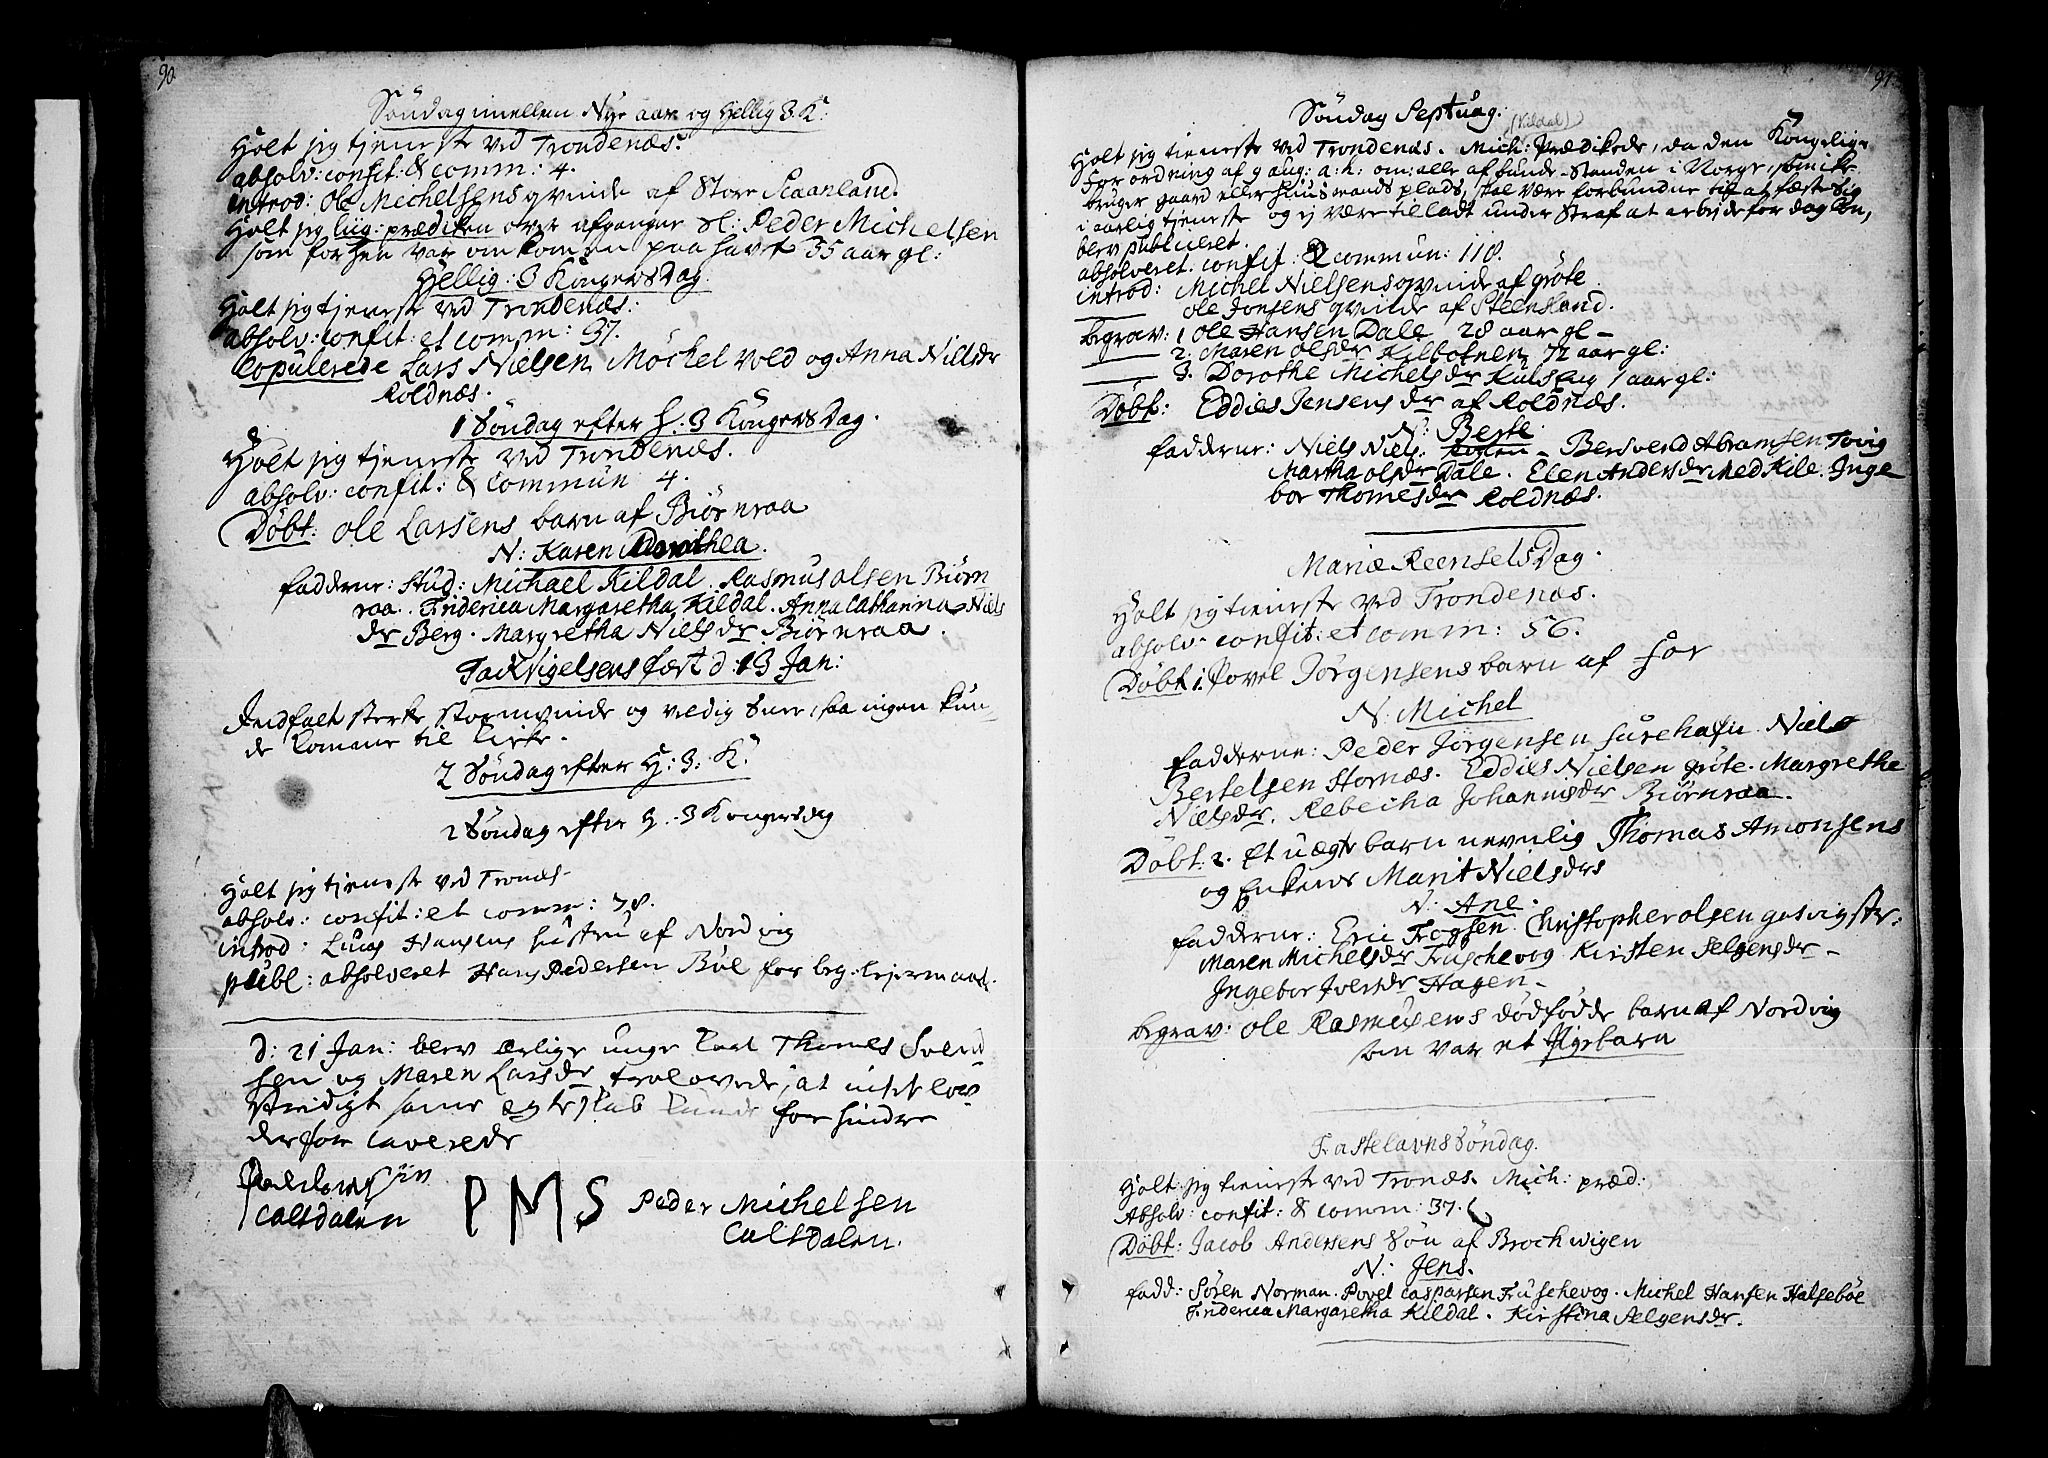 90
Söndag imellem Nyt aar og Hellig 3 K:
Holt jeg tjeneste ved Trondenæs.
absolv: confit: & comm: 4.
introd: Ole Michelsens qvinde af Store Scaanland.
Holt jeg liig-prædiken over afgangne Sl: Peder Michelsen
som forhen var omkommen paa havet 35 aar gl:
Hellig: 3 Kongers Dag.
Holt jeg tjeneste ved Trondenæs:
absolv: confit: et comm: 37.
Copulerede Lars Nielsen Möchelvold og Anna Nielsdr
Roldnæs.
1 Söndag efter H. 3 Kongers Dag.
Holt jeg tjeneste ved Trondenæs.
absolv: confit: & commun 4.
Döbt: Ole Larsens barn af Biörnraa
N: Karen Dorothea.
fadderne: Stud: Michael Kildal. Rasmus Olsen Biörn
raa. Friderica Margaretha Kildal. Anna Cathanina Niels
dr Berg. Margretha Nielsdr Biörnraa.
Tacksigelsens fæst d: 13 Jan:
Indfalt sterke stormvinde og veldig Snee, saa ingen kun-
de komme til kirke.
2 Söndag efter H: 3: K:
2 Söndag efter H. 3 Kongersdag
Holt jeg tjeneste ved Tronæs.
absolv: confit: et comm: 78.
introd: Lucas Hansens hustru af Nordvig
publ: absolveret Hans Pedersen Böe for beg: lejermaal.
d: 21 Jan: blev ærlige unge Karl Thomes Svend
sen og Maren Larsdr trolovede, at intet lov
stridigt same egteskab kunde forhindre
derfor caverede
Caltdalen
P M S Peder Michelsen
Caltdalen.
91
Söndag Septuag:
(Kildal)
Holt jeg tieneste ved Trondenæs. Mich: Prædikede, da den Kongelige
Forordning af 9 aug: a: h: om: alle af bunde-standen i Norge, som ik-
bruger gaard eller huusmands plads, skal være forbundne til at fæste sig
i aarlig tjeneste og ej være tilladt under Straf at arbejde for dag løn,
blev publiceret.
absolveret. confit: & commun: 118.
introd: Michel Nielsens qvinde af gröte.
Ole Jonsens qvinde af Steensland.
begrav: 1 Ole Hansen Dale 28 aar gl-
2. Maren Olsdr Kilbotnen 72 aar gl:
3. Dorothe Michelsdr Kulseng 1 aar gl:
Döbt: Eddies Jensens dr af Roldnæs.
N: Berte.
fadderne: Niels Niels: - Bersvend Abramsen Tovig
Martha Olsdr Dale. Elen Andersdr Nedkile. Inge
bor Thomesdr Roldnæs.
Mariæ Reenselsdag.
Holt jeg tieneste ved Trondenæs.
absolv. confit: et comm: 56.
Döbt 1. Povel Jörgensens barn af For
N: Michel
fadderne: Peder Jörgensen Surehafn. Niels
Bertelsen Stornæs. Eddies Nielsen gröte. Margrethe
Nielsdr. Rebecha Johannisdr Biörnraa.
Döbt: 2. Et uægte barn nevnlig Thomas Amonsens
og Enkens Marit Nielsdrs
N: Ane.
fadderne: Eric Frogsen. Christopher Olsen
Maren Michelsdr Fuschevog Kirsten Selgensdr -
Ingebor Iversdr Hagen -
begrav: Ole Rasmusens dödfödde barn af Nordvig
som var et Pigebarn
Fastelavns Söndag.
Holt jeg tieneste ved Tronæs. Mich: præd:
Absolv: confit: & comm: 37.
Döbt: Jacob Andersens Sön af Brochwigen
N: Jens.
fadd: Sören Norman. Povel Casparsen Fuschevog. Michel Hansen Halseböe
Friderica Margaretha Kildal. Kirstina Selgensdr.